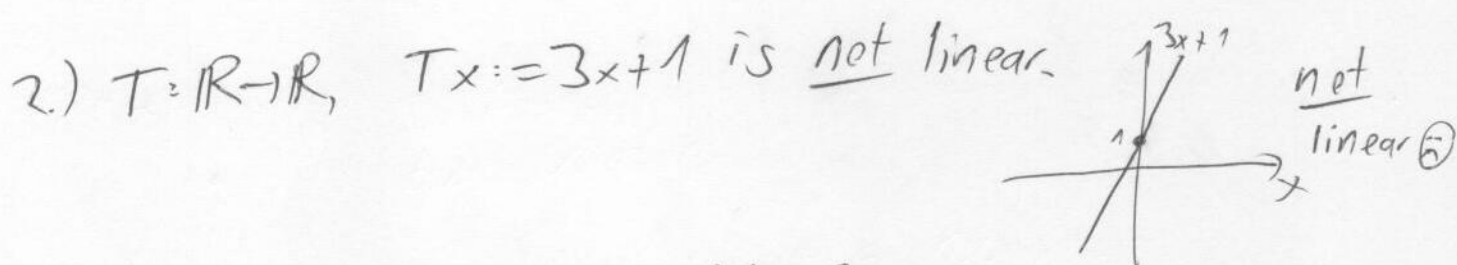 2.) T: ℝ→ℝ, Tx := 3x+1 is not linear.
3x+1
1
x
not
linear